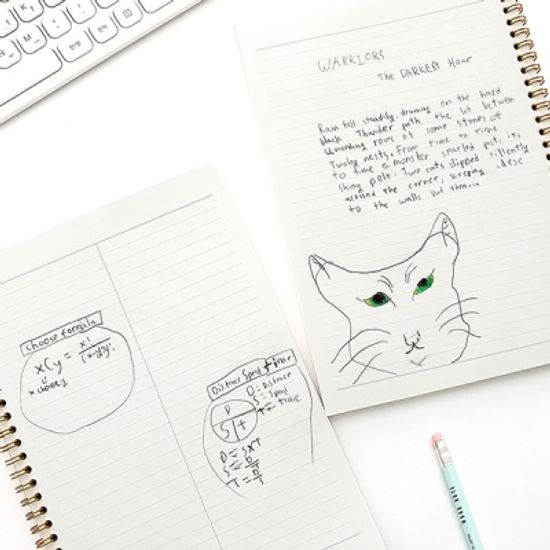 WARRIORS
The DARKEST Hour
Rain fell steadily, druming on the hard
black Thunder path the lot between
Unending rows of some stones of
Twoleg nests. From time to time
to time a monster snarled past, it,
shiny pelt. Two cats slipped silently
around the corner, keeping
to the walls but
Choose Formula
xCy = x! / (x-y)!y!
x choose y
Distance Speed + time
D
S t
D = Distance
S = Speed
T = time
D = S×T
S = D/T
T = D/S